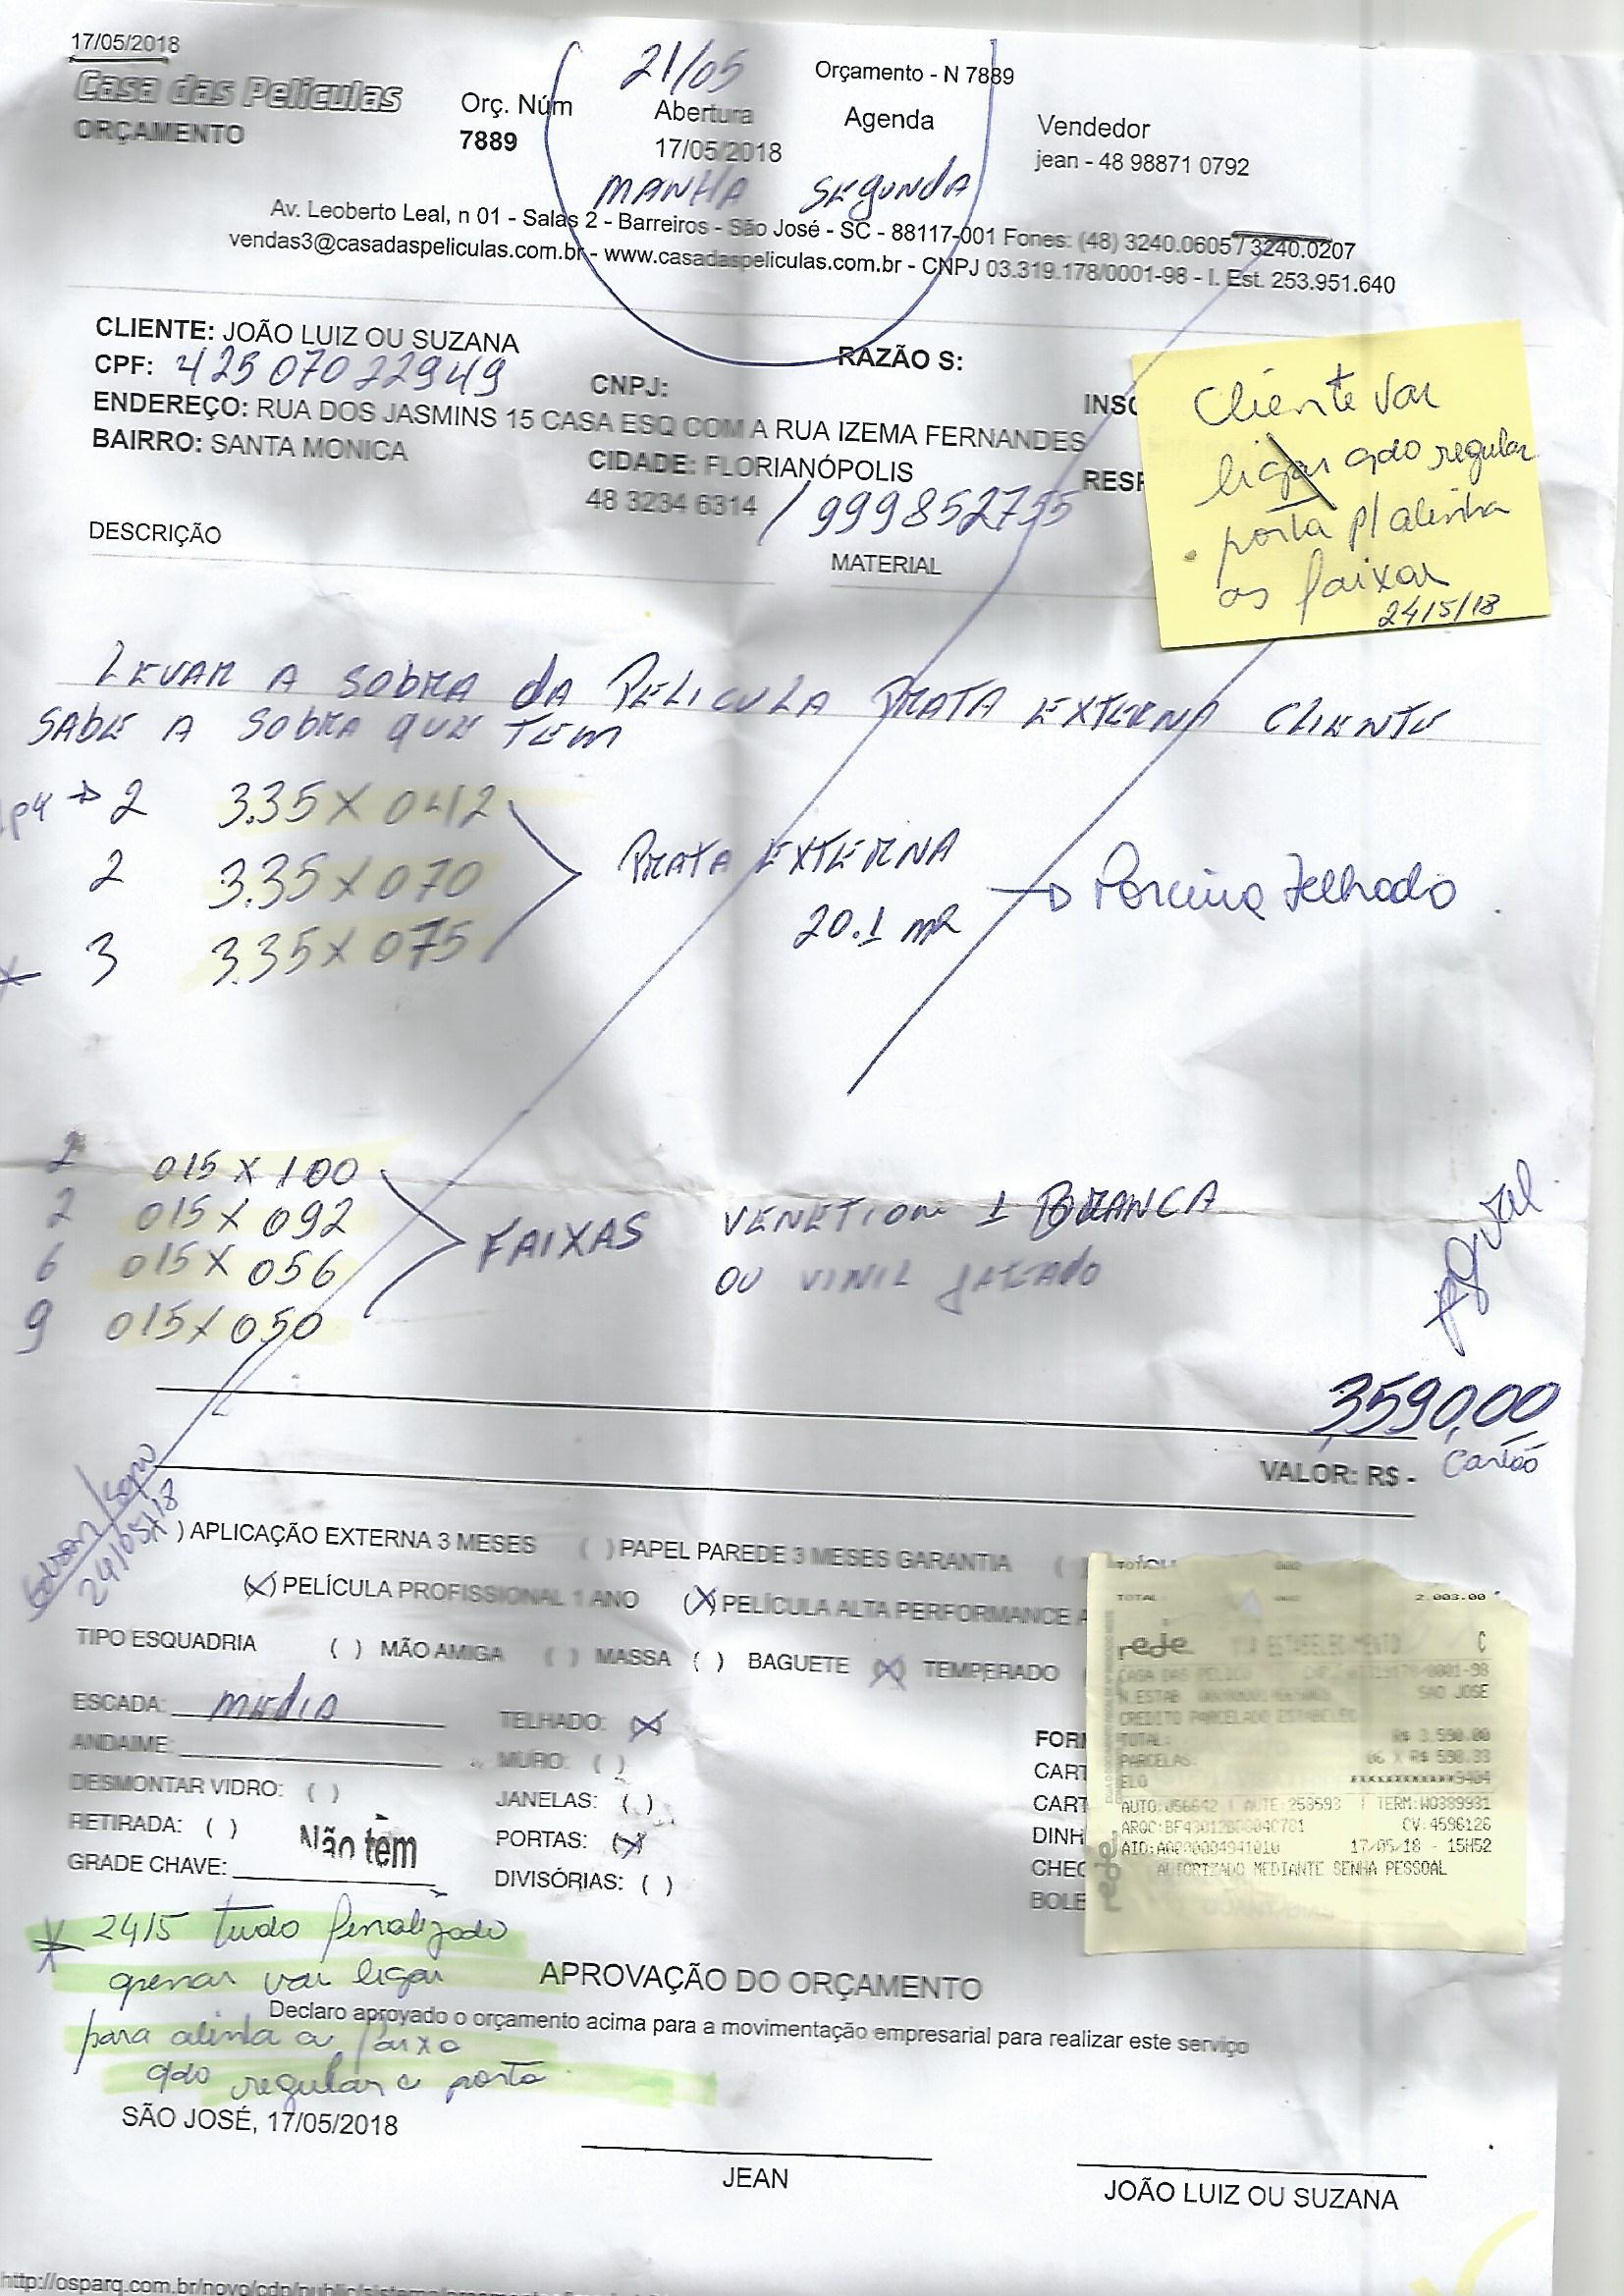 17/05/2018
Casa das Películas
ORÇAMENTO
Orç. Núm
7889
21/05
Abertura
17/05/2018
Orçamento - N 7889
Agenda
MANHA SEGUNDA
Vendedor
jean - 48 98871 0792
Av. Leoberto Leal, n 01 - Salas 2 - Barreiros - São José - SC - 88117-001 Fones: (48) 3240.0605 / 3240.0207
vendas3@casadaspeliculas.com.br - www.casadaspeliculas.com.br - CNPJ 03.319.178/0001-98 - I. Est. 253.951.640
CLIENTE: JOÃO LUIZ OU SUZANA
RAZÃO S:
CPF: 42507022949
CNPJ:
INSC
ENDEREÇO: RUA DOS JASMINS 15 CASA ESQ COM A RUA IZEMA FERNANDES
BAIRRO: SANTA MONICA
CIDADE: FLORIANÓPOLIS
RESP
48 3234 6314 / 999852755
Cliente vai
ligar qdo regular
porta p/ alinha
as faixas
24/5/18
DESCRIÇÃO
MATERIAL
LEVAR A SOBRA DA PELICULA PRATA EXTERNA CLIENTE
SABE A SOBRA QUE TEM
2 3.35 X 042
2 3.35 X 070
3 3.35 X 075
PRATA EXTERNA
20.1 m2
Parceira Telhado
2 015 X 100
2 015 X 092
6 015 X 056
9 015 X 050
FAIXAS
VENETION 1 BRANCA
OU VINIL JATEADO
3,590,00
VALOR: R$ - Cartão
24/05/18
) APLICAÇÃO EXTERNA 3 MESES ( ) PAPEL PAREDE 3 MESES GARANTIA (
(X) PELÍCULA PROFISSIONAL 1 ANO (X) PELÍCULA ALTA PERFORMANCE A
TIPO ESQUADRIA ( ) MÃO AMIGA ( ) MASSA ( ) BAGUETE (X) TEMPERADO
ESCADA: MEDIA
ANDAIME:
DESMONTAR VIDRO: ( )
RETIRADA: ( )
GRADE CHAVE:
Não tem
TELHADO: (X)
MURO: ( )
JANELAS: ( )
PORTAS: (X)
DIVISÓRIAS: ( )
FOR
CART
CART
DINH
CHEC
BOLE
TOTAL: 002 2.003.00
rede VIA ESTABELECIMENTO C
SAO JOSE
CREDITO PARCELADO ESTABELEC
TOTAL: R$ 3.590.00
PARCELAS: 06 X R$ 598.33
ELO ************9404
AUTO:J56642 AUTE:259593 TERM:W0389931
CV:4596126
AID:A0000004941010 17/05/18 - 15H52
AUTORIZADO MEDIANTE SENHA PESSOAL
rede
24/5 tudo penalizado
apenas vai ligar
para alinha a faixa
qdo regular a porta
APROVAÇÃO DO ORÇAMENTO
Declaro aprovado o orçamento acima para a movimentação empresarial para realizar este serviço
SÃO JOSÉ, 17/05/2018
JEAN
JOÃO LUIZ OU SUZANA